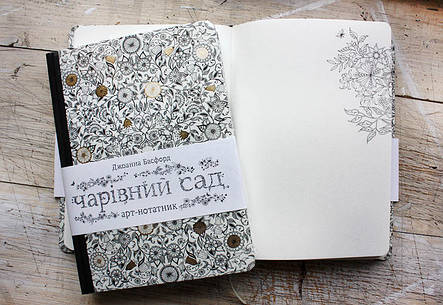 Джоанна Басфорд
чарівний сад
арт-нотатник